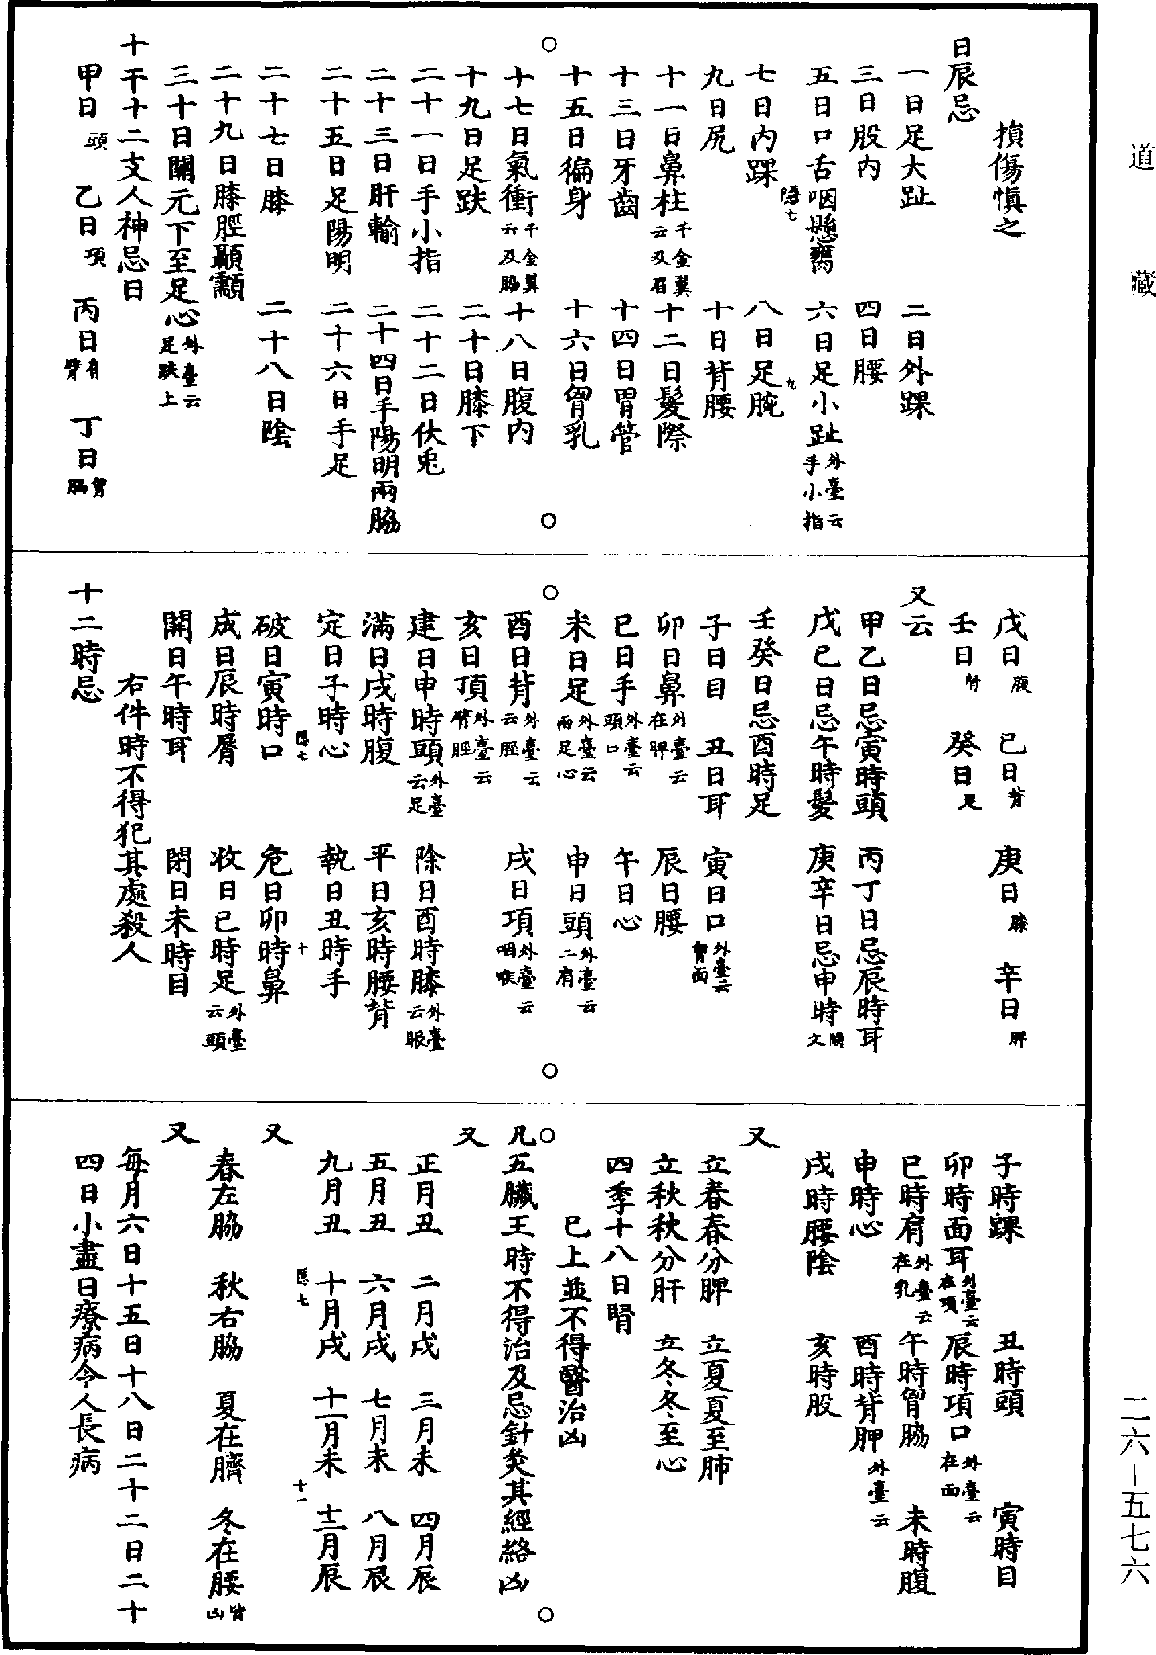 道藏
損傷慎之
日辰忌
一日足大趾 二日外踝
三日股内 四日腰
五日口舌咽懸㿉 六日足小趾外臺云手小指
七日内踝 八日足腕
九日尻 十日背腰
十一日鼻柱千金翼云及眉 十二日髮際
十三日牙齒 十四日胃管
十五日徧身 十六日胷乳
十七日氣衝千金翼云及脇 十八日腹内
十九日足趺 二十日膝下
二十一日手小指 二十二日伏兎
二十三日肝輸 二十四日手陽明兩脇
二十五日足陽明 二十六日手足
二十七日膝 二十八日陰
二十九日膝脛顳顬
三十日關元下至足心外臺云足趺上
十干十二支人神忌日
甲日頭 乙日項 丙日肩臂 丁日胷脇
戊日腹 己日背 庚日膝 辛日脾
壬日腎 癸日足
又云
甲乙日忌寅時頭 丙丁日忌辰時耳
戊己日忌午時髮 庚辛日忌申時闕文
壬癸日忌酉時足
子日目 丑日耳 寅日口外臺云胷面
卯日鼻外臺云在脾 辰日腰
巳日手外臺云頭口 午日心
未日足外臺云兩足心 申日頭外臺云二肩
酉日背外臺云脛 戌日項外臺云咽喉
亥日頂外臺云臂脛
建日申時頭外臺云足 除日酉時膝外臺云眼
滿日戌時腹 平日亥時腰背
定日子時心 執日丑時手
破日寅時口 危日卯時鼻
成日辰時脣 收日巳時足外臺云頭
開日午時耳 閉日未時目
右件時不得犯其處殺人
十二時忌
子時踝 丑時頭 寅時目
卯時面耳外臺云在項 辰時項口外臺云在面
巳時肩外臺云在乳 午時胷脇 未時腹
申時心 酉時背胛外臺云
戌時腰陰 亥時股
又
立春春分脾 立夏夏至肺
立秋秋分肝 立冬冬至心
四季十八日腎
已上並不得醫治凶
凡五臟王時不得治及忌針灸其經絡凶
又
正月丑 二月戌 三月未 四月辰
五月丑 六月戌 七月未 八月辰
九月丑 十月戌 十一月未 十二月辰
又
春左脇 秋右脇 夏在臍 冬在腰皆凶
又
每月六日十五日十八日二十二日二十
四日小盡日療病令人長病
二六—五七六